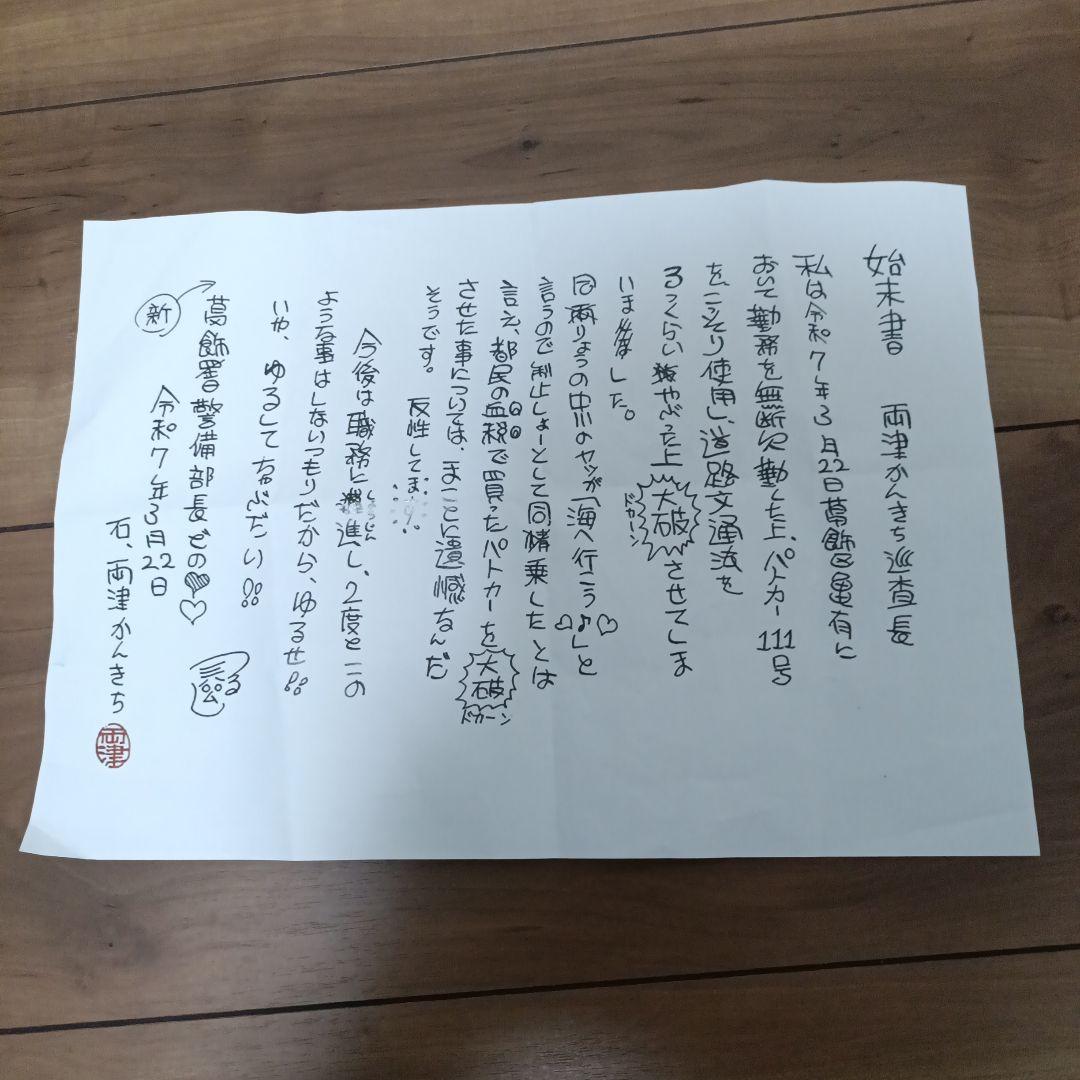 始末書　両津かんきち巡査長
私は令和7年3月22日葛飾区亀有に
おいて勤務を無断欠勤した上、パトカー111号
をこっそり使用し、道路交通法を
るっくらい破やぶった上大破させてしま
ドカーン
いました。
同両りょうの中川のヤツが「海へ行こう♪」と
言うので制止しよーとして同乗したとは
言え、都民の血税で買ったパトカーを大破
ドカーン
させた事については、まことに遺憾なんだ
そうです。反性してま
今後は職務に進し、2度とこの
しん
ような事はしないつもりだから、ゆるせ!!
いや、ゆるしてちょぶだい!!
新
葛飾署警備部長どの♥♡
令和7年3月22日
右、両津かんきち
両津